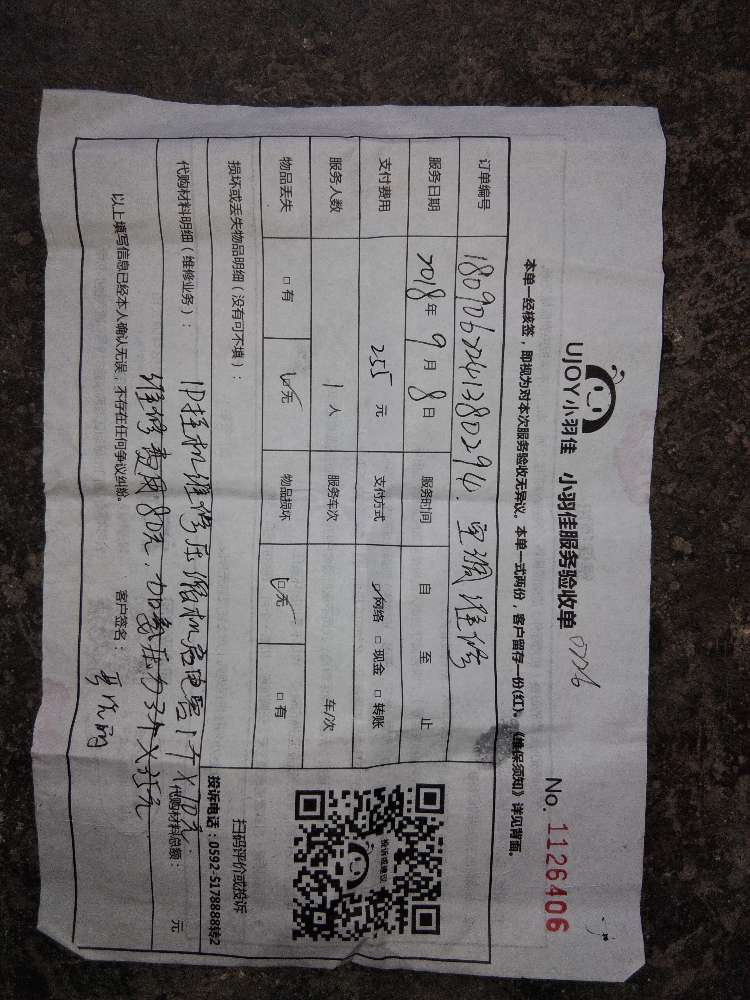 UJOY小羽佳 小羽佳服务验收单 0226
No. 1126406
本单一经核签，即视为对本次服务验收无异议。本单一式两份，客户留存一份(红)。《维保须知》详见背面。
订单编号 空调维修
服务日期 2018年9月8日 服务时间 自 至 止
支付费用 255元 支付方式 ☑网络 □现金 □转账
服务人数 1人 服务车次 车/次
物品丢失 □有 ☑无 物品损坏 ☑无 □有
投诉或建议
扫码评价或投诉
投诉电话：0592-5178888转2
损坏或丢失物品明细（没有可不填）：
代购材料明细（维修业务）： 1P挂机维修压缩机启电容1个×10元
代购材料总额： 元
维修费用80元，加氟压力3个×55元
以上填写信息已经本人确认无误，不存在任何争议纠纷。 客户签名：